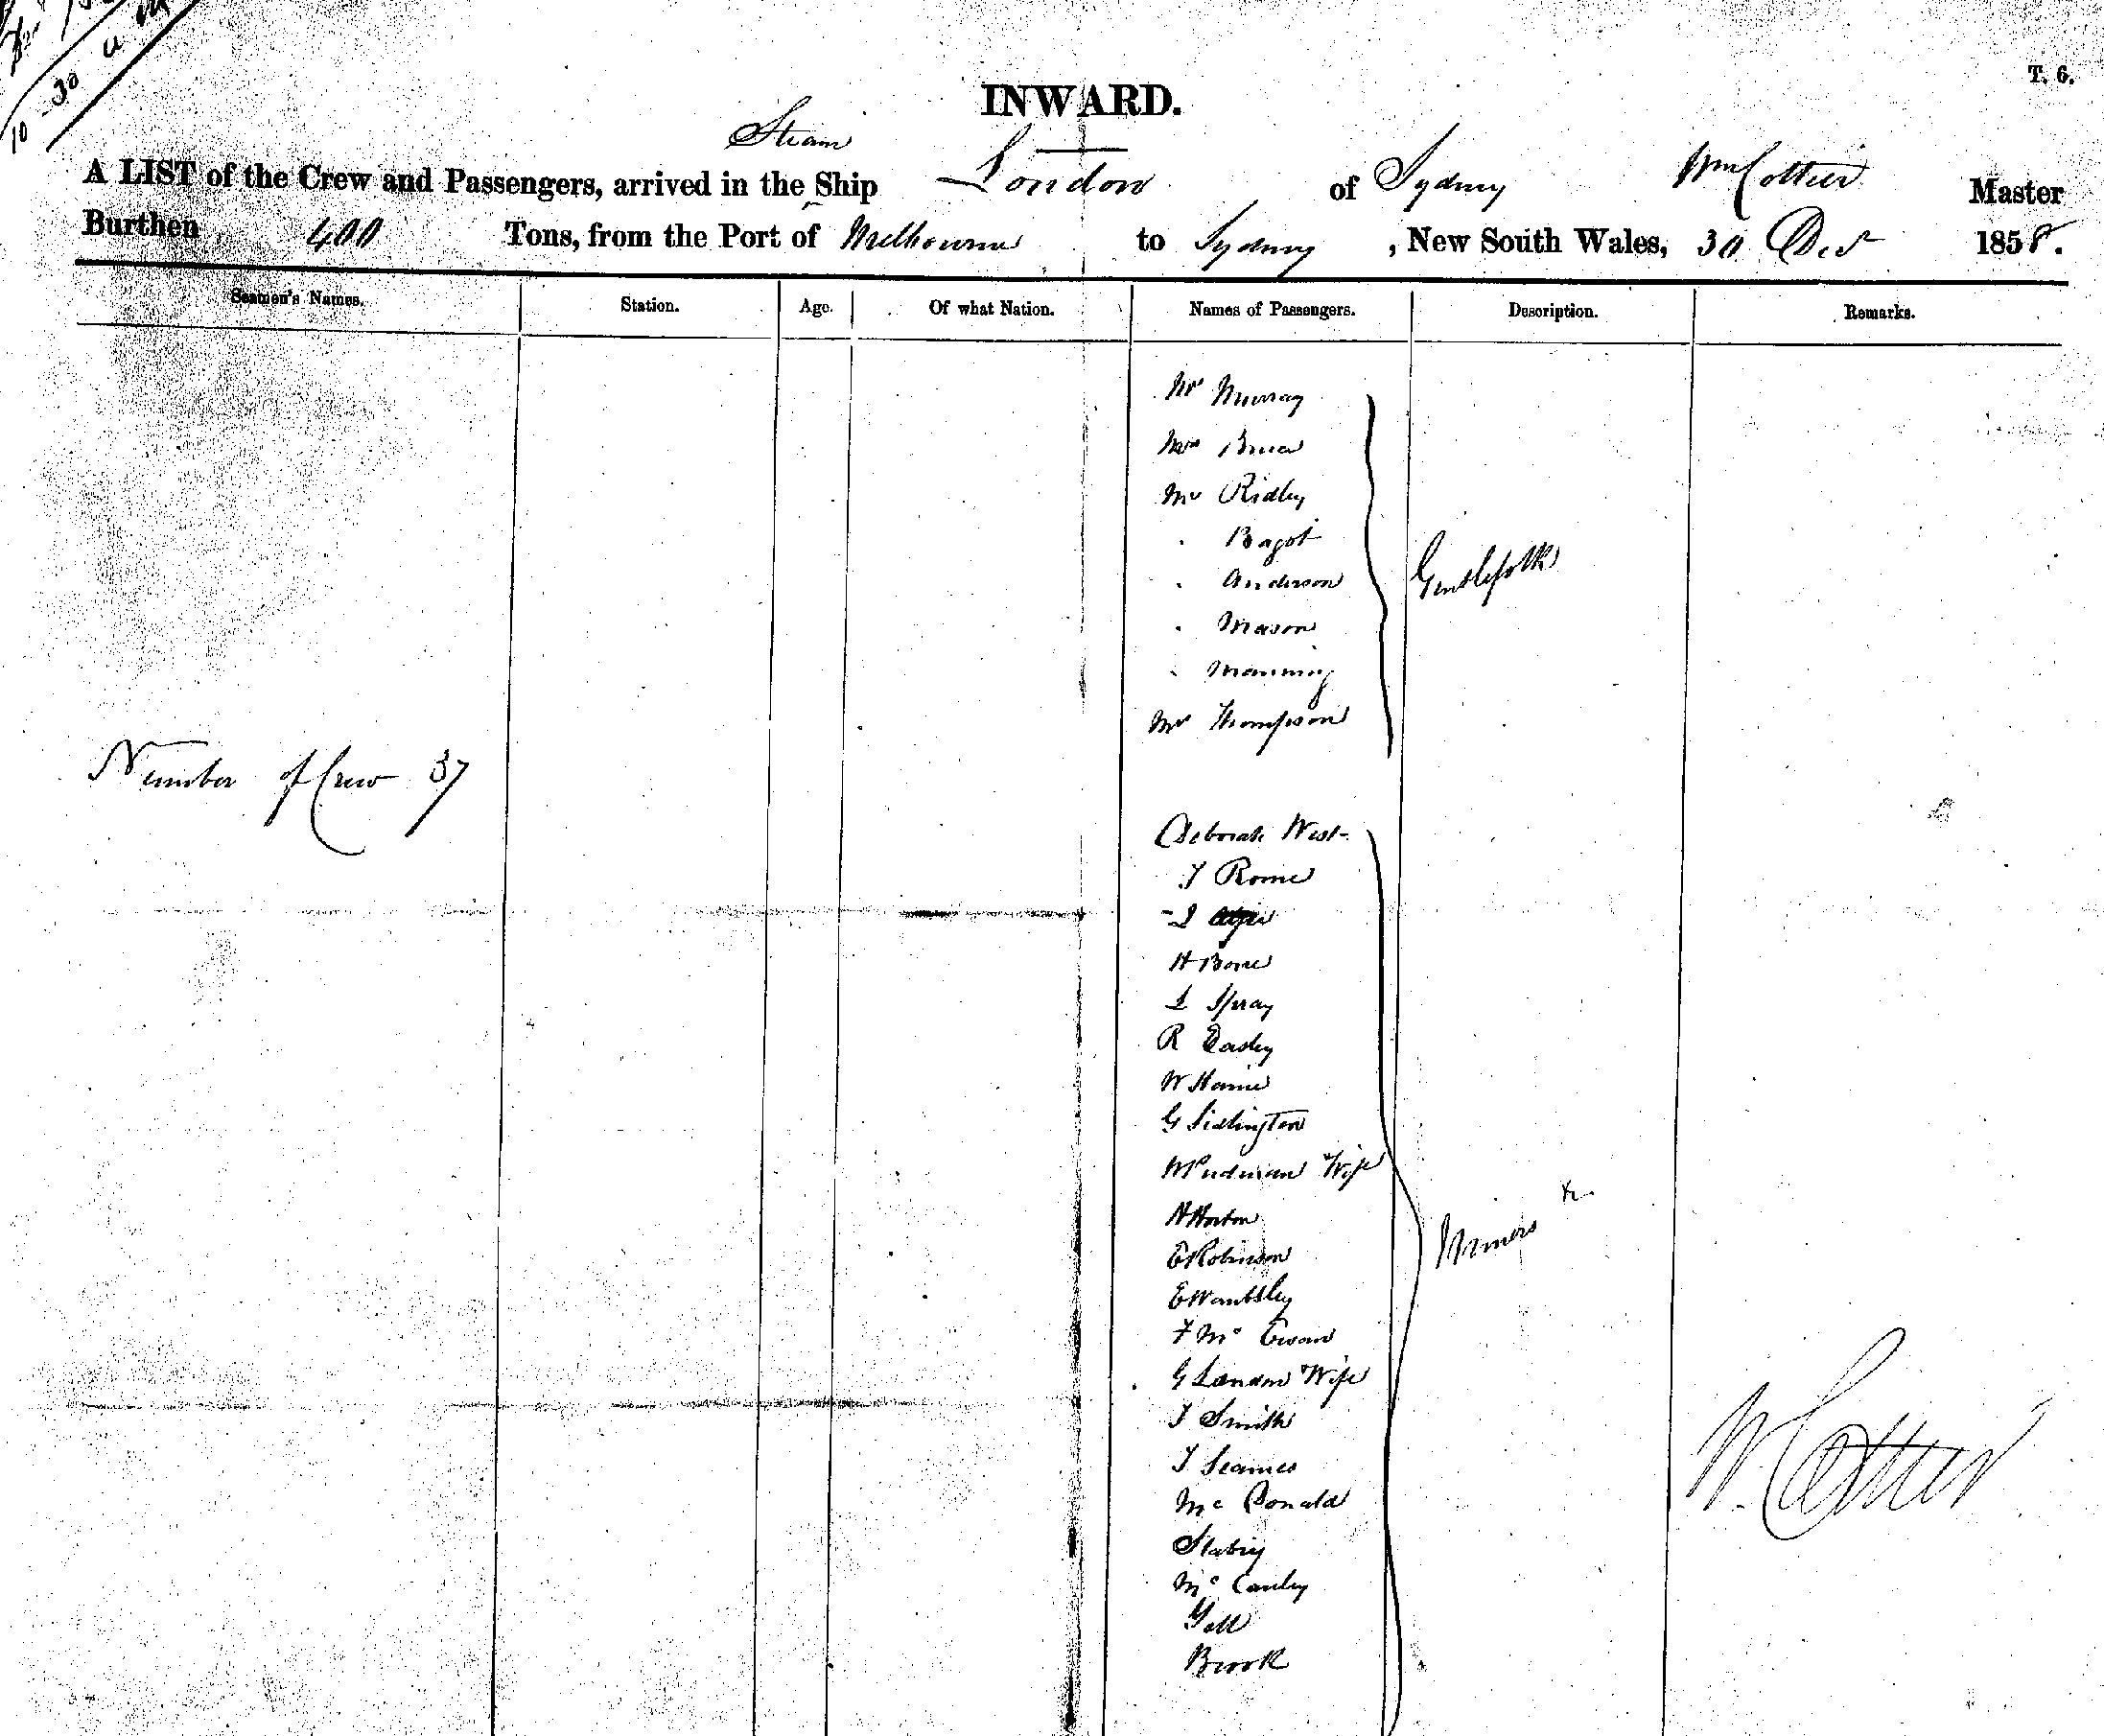 10 30 a m
T. 6.
INWARD.
Steam
A LIST of the Crew and Passengers, arrived in the Ship London of Sydney Wm Cottier Master
Burthen 400 Tons, from the Port of Melbourne to Sydney, New South Wales, 30 Dec 1858.
Seamen's Names. Station. Age. Of what Nation. Names of Passengers. Description. Remarks.
Mr Murray
Mrs Bruce
Mr Ridley
" Bagot
" Anderson Gentlefolks
" Mason
" Manning
Mr Thompson
Number of Crew 37
Deborah West
J Rome
H Bone
L Spray
R Easley
W Hanie
G Sidlington
Wife
H Horton
E Robinson Miners &c
E Wambsley
F Mc Ewan
G Landon Wife
J Smith
J Seames
Mc Donald
W. Cottier
Mc Cauley
Brook